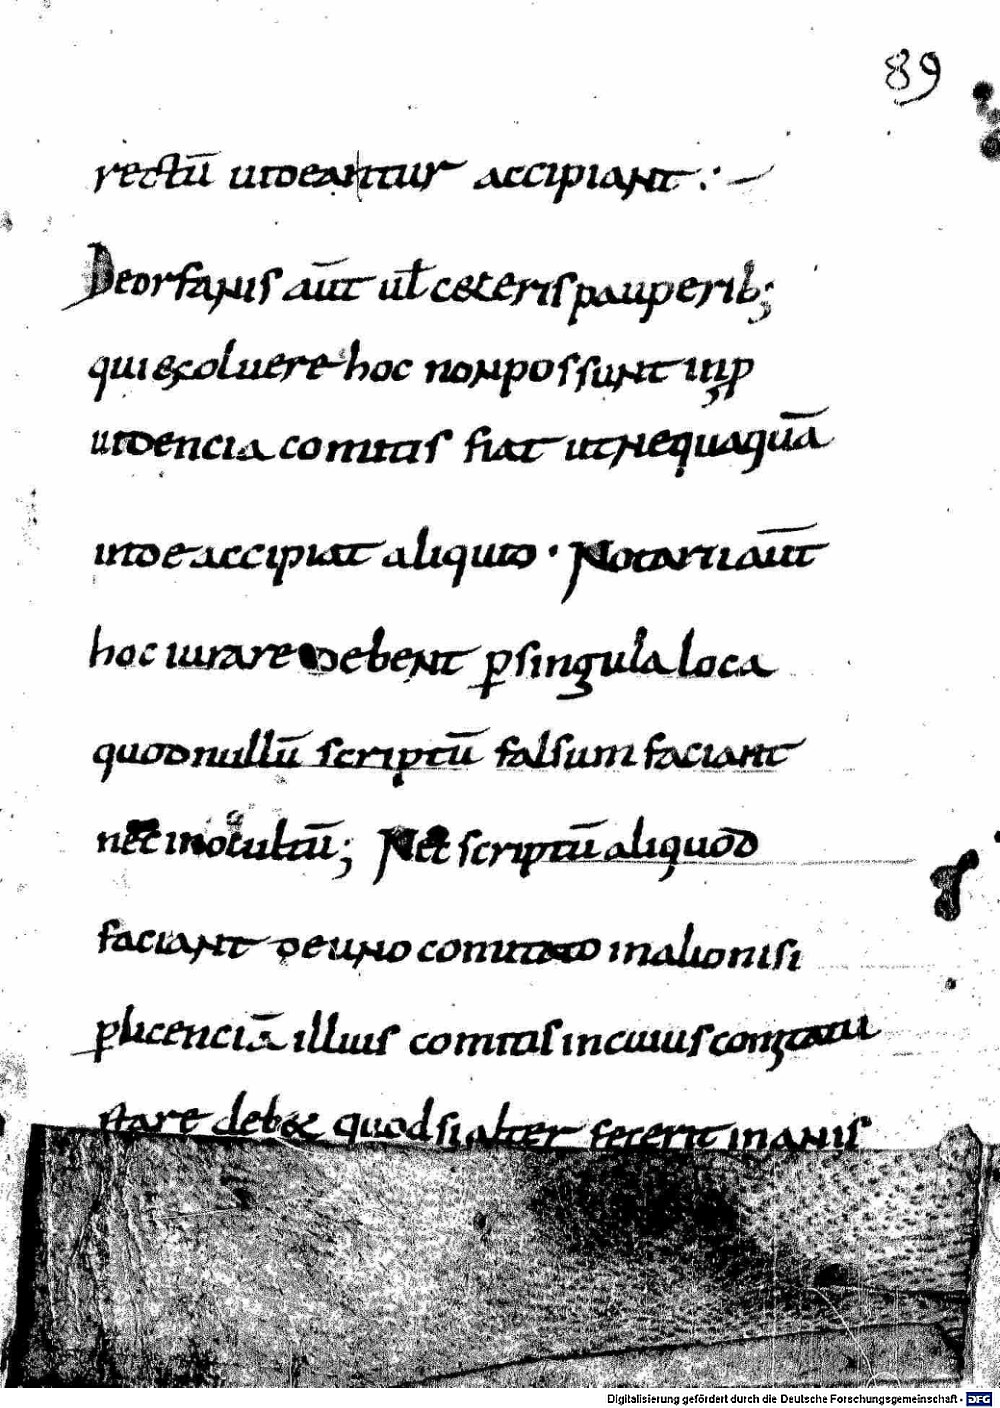 89
rectū uideantur accipiant :·
De orfanis aūt uƚ ceteris pauperib;
qui exoluere hoc non possunt in p̱
uidencia comitis fiat ut nequaquā
inde accipiat aliquid · Notarii aūt
hoc iurare debent ꝑ singula loca
quod nullū scriptū falsum faciant
nec in ocultū; Nec scriptū aliquod
faciant de uno comitato in alio nisi
ꝑ licenciā illius comitis in cuius comitatu
stare deb& quod si aliter fecerit inanis
Digitalisierung gefördert durch die Deutsche Forschungsgemeinschaft - DFG